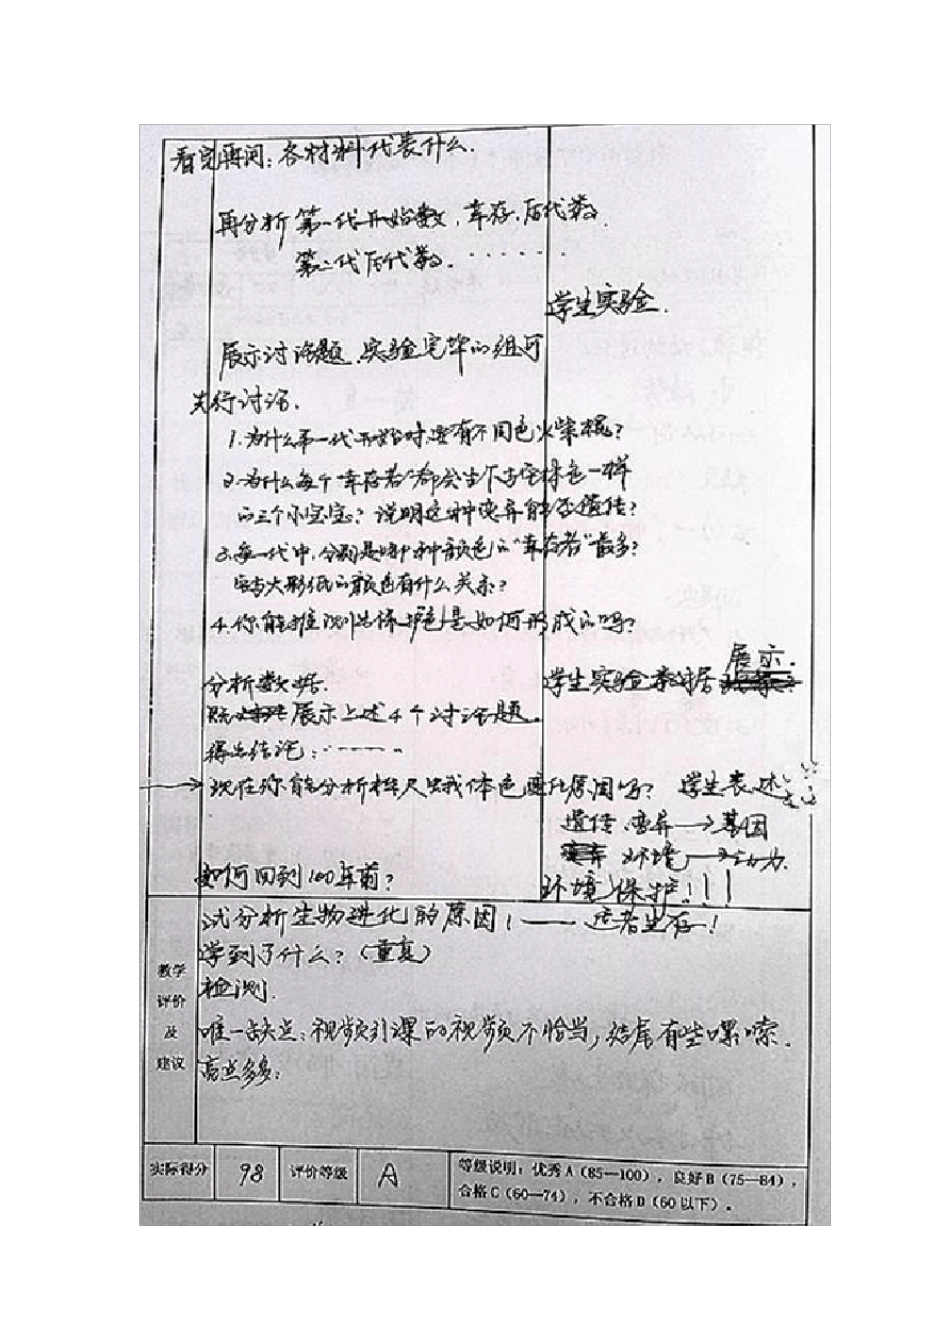 看完再问:各材料代表什么.
再分析 第一代开始数,幸存、后代数.
第二代后代数.······
学生实验.
展示讨论题,实验完毕的组可
先行讨论.
1.为什么第一代开始时要有不同色火柴棍?
2.为什么每个"幸存者"都会生下与它体色一样
的三个小宝宝?说明这种变异能否遗传?
3.每一代中,分别是哪种颜色的"幸存者"最多?
它与大彩纸的颜色有什么关系?
4.你能推测出保护色是如何形成的吗?
展示.
分析数据.
学生实验数据
展示上述4个讨论题。
得出结论:-----
现在你能分析桦尺蛾体色变化原因吗? 学生表述
遗传、变异→基因
环境→动力.
如何回到100年前? 环境保护!!!
试分析生物进化的原因!——适者生存!
学到了什么?(重复)
检测.
唯一缺点:视频引课的视频不恰当,结尾有些啰嗦.
亮点多多:
教学
评价
及
建议
实际得分 98 评价等级 A
等级说明:优秀A(85—100),良好B(75—84),
合格C(60—74),不合格D(60以下)。